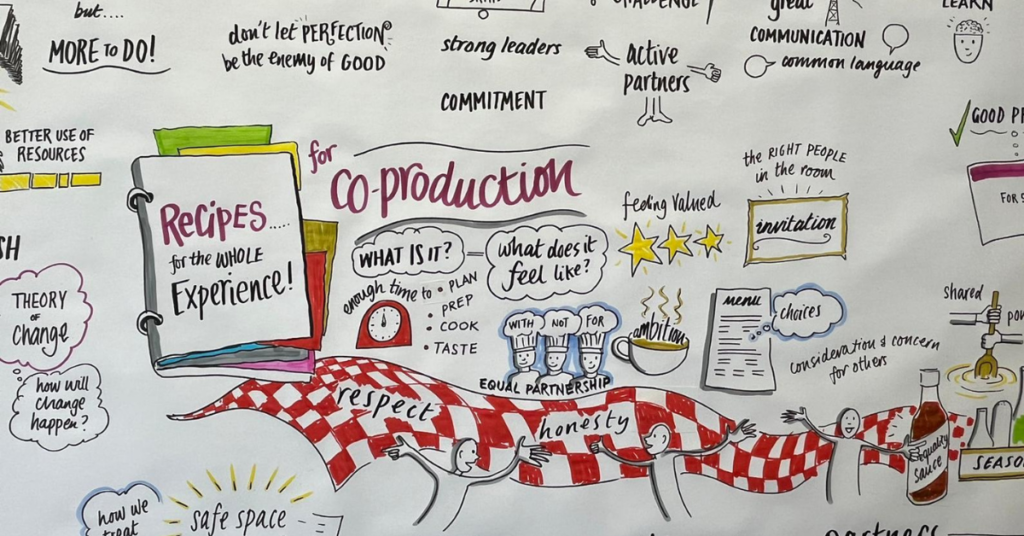 but....
MORE TO DO!
don't let PERFECTION
be the enemy of GOOD
strong leaders
COMMITMENT
active
partners
great
COMMUNICATION
common language
LEARN
BETTER USE OF
RESOURCES
RECIPES.....
for the WHOLE
Experience!
for
CO-PRODUCTION
WHAT IS IT?
what does it
feel like?
enough time to
• PLAN
PREP
• COOK
• TASTE
WITH
NOT
FOR
EQUAL PARTNERSHIP
feeling valued
the RIGHT PEOPLE
in the room
invitation
ambition
menu
choices
consideration & concern
for others
GOOD
FOR
shared
THEORY
OF
CHANGE
how will
change
happen?
respect
honesty
equality
sauce
how we
treat
safe space
partners